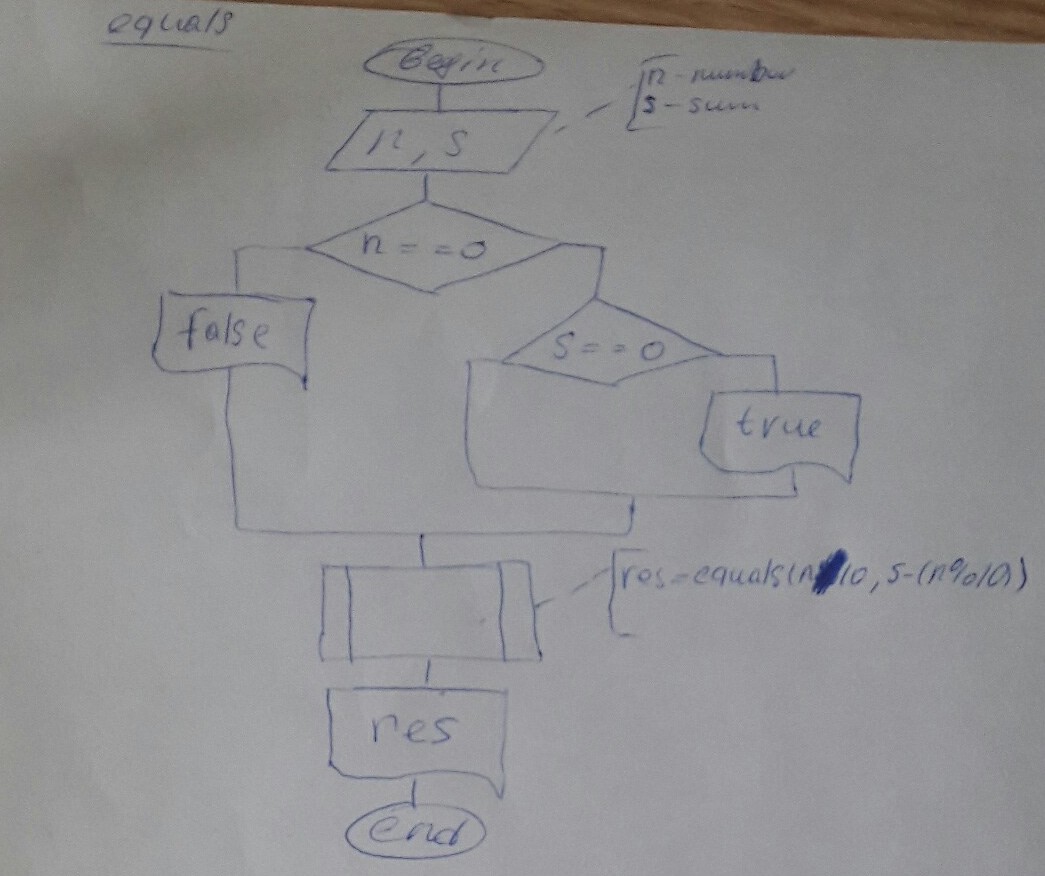 equals
Begin
n - number
s - sum
n, s
n = = 0
false
S = = 0
true
res = equals(n/10, s-(n%10))
res
end